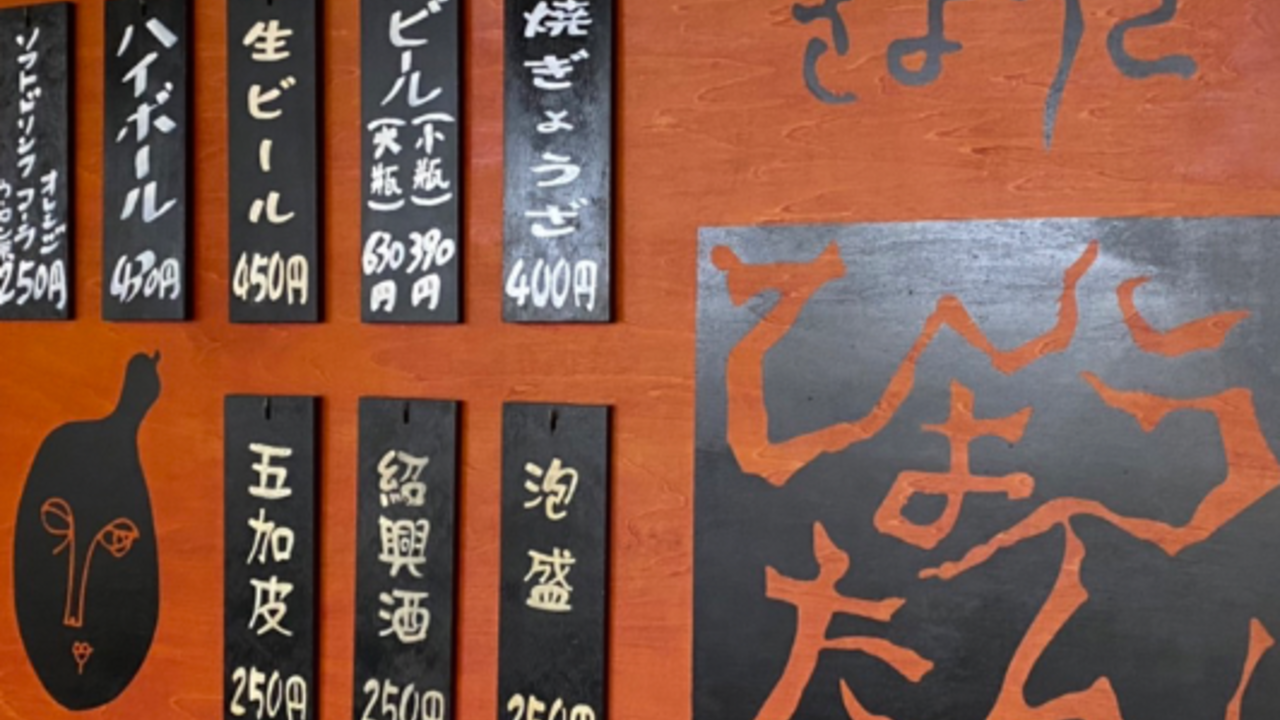 焼ぎょうざ
400円
ビール
(小瓶)
390円
(大瓶)
630円
生ビール
450円
ハイボール
430円
ソフトドリンク
オレンジ
コーラ
250円
泡盛
250円
紹興酒
250円
五加皮
250円
ひょうたん